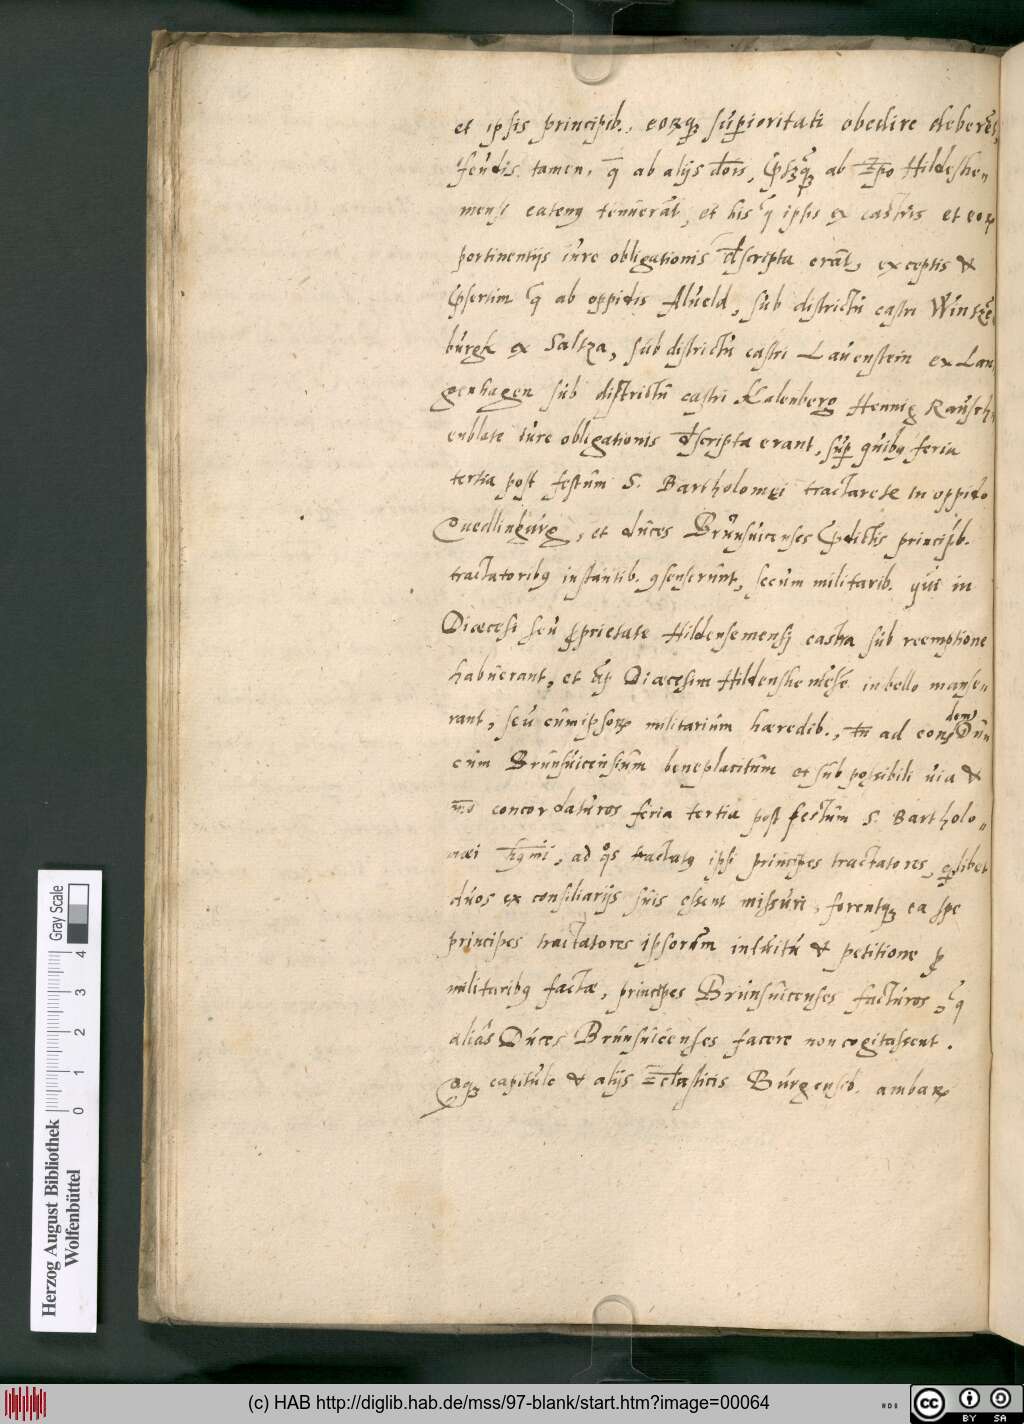 et ipsis principib., eorq; superioritati obedire deberēt,
feudis tamen, q̄ ab alijs dōis, ab Hildeshe„
mensi eatenq tenuerāt, et his q ipsis ex castris et eor
pertinentijs iure obligationis dscripta erāt, exceptis &
psertim q̄ ab oppidis Alueld, sub districtu castri Winszē
burgk ex Saltza, sub districtu castri Lauenstein ex Lan
genhagen sub districtu castri Kalenberg Hennig Rausch„
enblate iure obligationis dscripta erant, sup quibq feria
tertia post festum S. Bartholomęi tractare in oppido
Quedlinburg, et duces Brunsuicenses pdictis principib.
tractatoribq instantib. 9senserunt, secum militarib. qui in
Diœcesi seu pprietate Hildensemensj castra sub reemptione
habuerant, et Diœcesim Hildenshemēsē in bello manse„
rant, seu cum ipsor militarium hæredib., tn ad eors dem Du„
cum Brunsuicensium beneplacitum et sub possibili uia &
mō concordaturos feria tertia post festum S. Bartholo„
mæi, ad q̊s tractatq ipsi principes tractatores, qlibet
duos ex consiliarijs suis essent missuri, forentq; ea spe
principes tractatores ipsorum intuitu & petitione p
militaribq factæ, principes Brunsuicenses facturos, q
alias Duces Brunsuicenses facere non cogitassent.
Qq; capitulo & alijs Ecclasticis Burgensib. ambar
Herzog August Bibliothek
Wolfenbüttel
0 1 2 3 4
Gray Scale
(c) HAB http://diglib.hab.de/mss/97-blank/start.htm?image=00064
cc BY SA